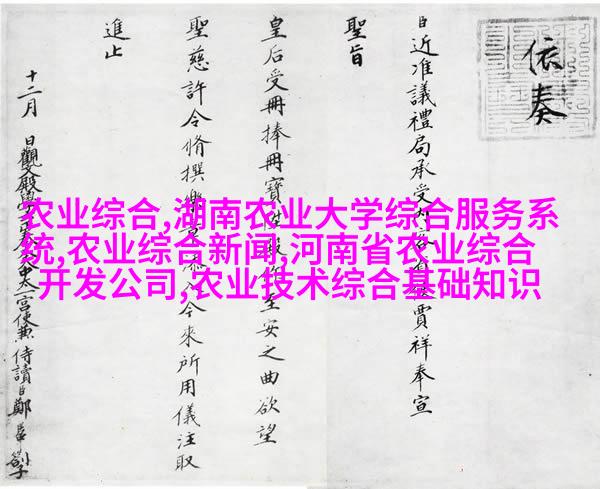 依奏
臣近准議禮局承受賈祥奉宣
聖旨
皇后受冊捧冊寶至安之曲欲望
聖慈許令脩撰樂今來所用儀注取
進止
十二月 日觀文殿學宮使兼侍讀臣鄭
农业综合,湖南农业大学综合服务系
统,农业综合新闻,河南省农业综合
开发公司,农业技术综合基础知识